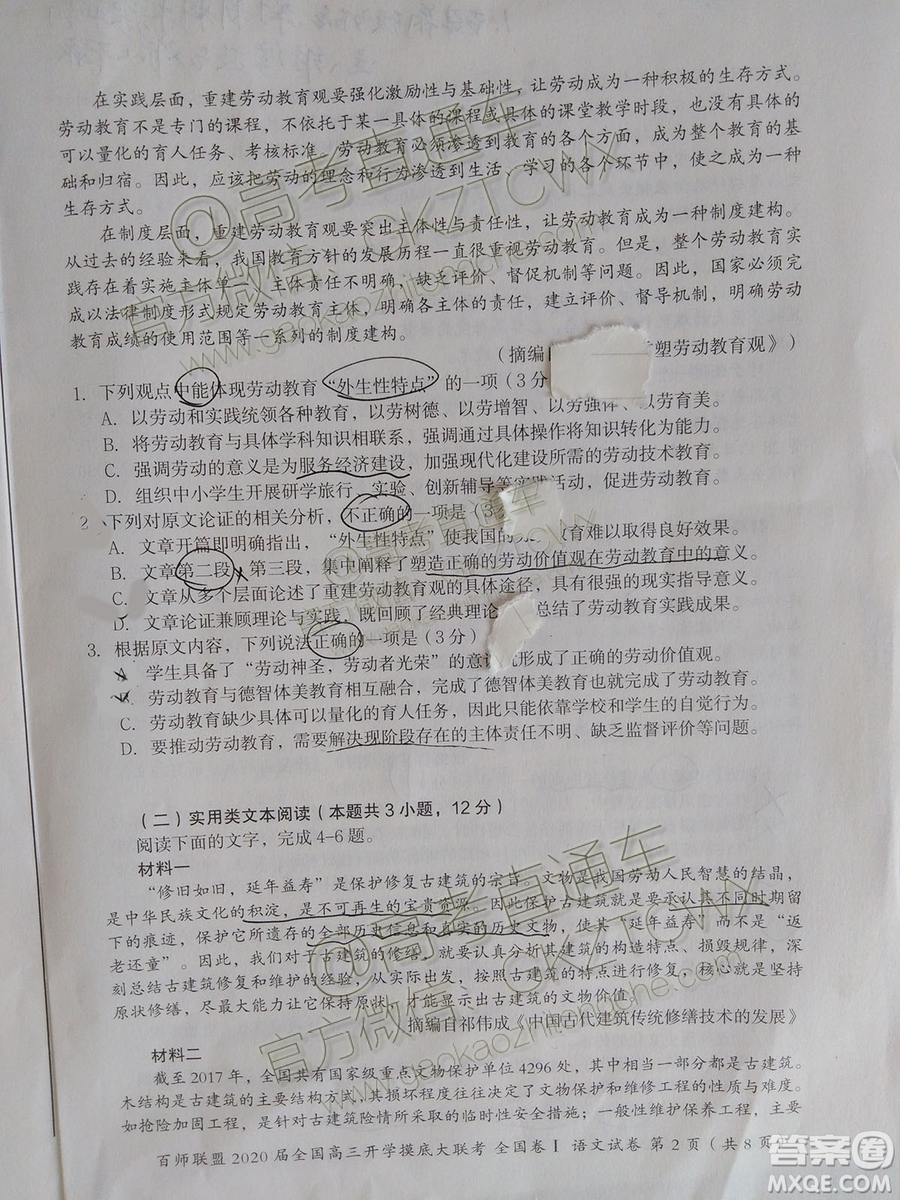 在实践层面，重建劳动教育观要强化激励性与基础性，让劳动成为一种积极的生存方式。
劳动教育不是专门的课程，不依托于某一具体的课程或具体的课堂教学时段，也没有具体的
可以量化的育人任务、考核标准。劳动教育必须渗透到教育的各个方面，成为整个教育的基
础和归宿。因此，应该把劳动的理念和行为渗透到生活、学习的各个环节中，使之成为一种
生存方式。
在制度层面，重建劳动教育观要突出主体性与责任性，让劳动教育成为一种制度建构。
从过去的经验来看，我国教育方针的发展历程一直很重视劳动教育。但是，整个劳动教育实
践存在着实施主体单一、主体责任不明确，缺乏评价、督促机制等问题。因此，国家必须完
成以法律制度形式规定劳动教育主体，明确各主体的责任，建立评价、督导机制，明确劳动
教育成绩的使用范围等一系列的制度建构。
（摘编 塑劳动教育观》）
1. 下列观点中能体现劳动教育“外生性特点”的一项（3分
A. 以劳动和实践统领各种教育，以劳树德、以劳增智、以劳强体、以劳育美。
B. 将劳动教育与具体学科知识相联系，强调通过具体操作将知识转化为能力。
C. 强调劳动的意义是为服务经济建设，加强现代化建设所需的劳动技术教育。
D. 组织中小学生开展研学旅行、实验、创新辅导等实践活动，促进劳动教育。
2. 下列对原文论证的相关分析，不正确的一项是（3分
A. 文章开篇即明确指出，“外生性特点”使我国的劳动教育难以取得良好效果。
B. 文章第二段、第三段，集中阐释了塑造正确的劳动价值观在劳动教育中的意义。
C. 文章从多个层面论述了重建劳动教育观的具体途径，具有很强的现实指导意义。
D. 文章论证兼顾理论与实践，既回顾了经典理论 总结了劳动教育实践成果。
3. 根据原文内容，下列说法正确的一项是（3分）
A. 学生具备了“劳动神圣，劳动者光荣”的意识就形成了正确的劳动价值观。
B. 劳动教育与德智体美教育相互融合，完成了德智体美教育也就完成了劳动教育。
C. 劳动教育缺少具体可以量化的育人任务，因此只能依靠学校和学生的自觉行为。
D. 要推动劳动教育，需要解决现阶段存在的主体责任不明、缺乏监督评价等问题。
（二）实用类文本阅读（本题共3小题，12分）
阅读下面的文字，完成4-6题。
材料一
“修旧如旧，延年益寿”是保护修复古建筑的宗旨。文物是我国劳动人民智慧的结晶，
是中华民族文化的积淀，是不可再生的宝贵资源。因此保护古建筑就要承认其不同时期留
下的痕迹，保护它所遗存的全部历史信息和真实的历史文物，使其“延年益寿”而不是“返
老还童”。因此，我们对于古建筑的修缮，就要认真分析其建筑的构造特点、损毁规律，深
刻总结古建筑修复和维护的经验，从而按照古建筑的特点进行修复，核心就是坚持不改变
原状修缮，尽最大能力让它保持原状，才能显示出古建筑的文物价值。
摘编自祁伟成《中国古代建筑传统修缮技术的发展》
材料二
截至2017年，全国共有国家级重点文物保护单位4296处，其中相当一部分都是古建筑。
木结构是古建筑的主要结构方式，其损坏程度往往决定了文物保护和维修工程的性质与难度。
如抢险加固工程，是针对古建筑险情所采取的临时性安全措施；一般性维护保养工程，主要
百师联盟2020届全国高三开学摸底大联考 全国卷Ⅰ 语文试卷 第2页（共8页）
@高考直通车
官方微信：OKZTCWY
www.gaokaozhitongche.com
@高考直通车
官方微信：OKZTCWY
www.gaokaozhitongche.com
答案圈
MXQE.COM